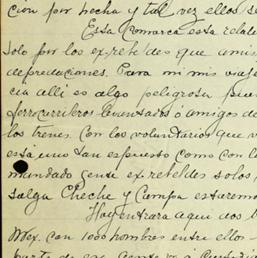 cion por hecha y tal vez ellos se
Esta comarca esta relati
solo por los ex-rebeldes que amis
depredaciones. Para mi mis viaje
cia alli es algo peligrosa pues
ferrocarrileros levantados ó amigos de
los trenes. Con los voluntarios que v
está uno tan espuesto como con lo
mandado gente ex-rebeldes solos,
salga Cheche y Campa estaremo
Hoy entrara aqui dos
Mex. con 1000 hombres entre ellos
parte de